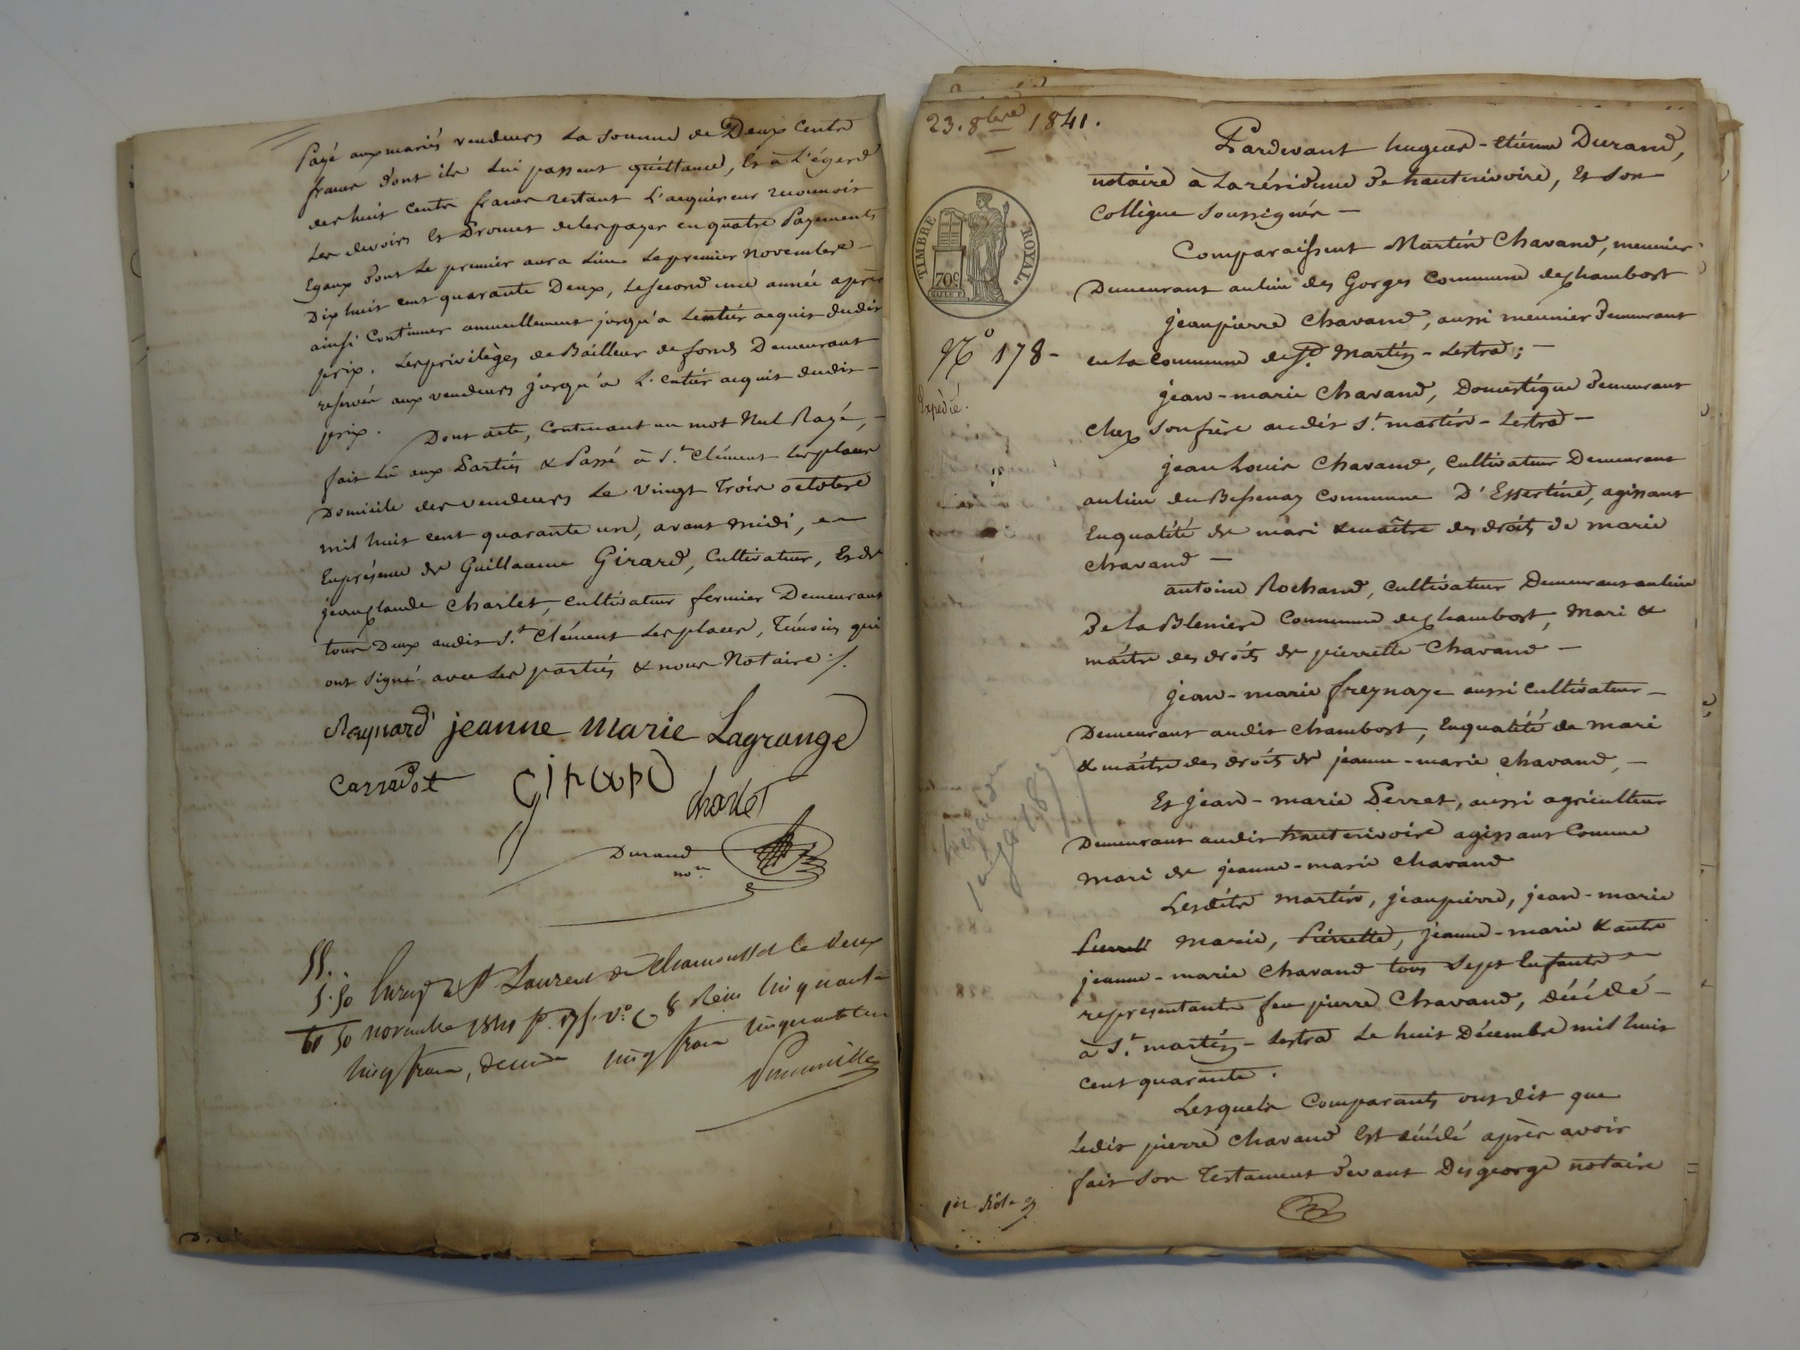 Payé aux mariés vendeurs la somme de Deux Cents
francs dont ils lui passent quittance, Et à L'égard
des huit Cents francs restant L'acquéreur reconnoit
Les devoirs Et Promet de les payer en quatre Payements
Egaux dont Le premier aura Lieu Le premier Novembre
Dix huit cent quarante Deux, Le second une année après
ainsi Continuer annuellement jusqu'a Lentier acquit dudit
prix. Les privilèges de Bailleur de fonds Demeurant
reservés aux vendeurs jusqu'a L'entier acquit dudit
prix.
Dont acte, Contenant un mot Nul Rayé,
fait Lû aux Parties & Passé à St Clément Les places
Domicile des vendeurs Le Vingt Trois octobre
mil huit cent quarante un, avant midi, en
En présence de Guillaume Girard, Cultivateur, Et de
jeanclaude Charlet, cultivateur fermier Demeurant
tous Deux audit St Clément Les places, Témoins qui
ont signé avec Les parties & nous Notaire ./.
Raynard jeanne Marie Lagrange
Carradot girard charlet
Durand
nore
55.
5.50 Enreg à St Laurent de Chamousset le deux
60 50 novembre 1841 fo 175 Vo C 8 Reçu cinquante
cinq francs, decime cinq francs cinquante cen
23. 8bre 1841.
TIMBRE ROYAL.
70c
No 178-
Expédié.
Pardevant hugues-etienne Durand,
notaire à La résidence de hauterivoire, Et Son
Collègue Soussignés —
Comparaissent Martin Chavand, meunier
Demeurant au lieu des Gorges Commune de Chambost
jeanpierre Chavand, aussi meunier demeurant
en La Commune de St. Martin-Lestra; —
jean-marie Chavand, Domestique demeurant
chez son frère audit St. martin-Lestra —
jean Louis Chavand, Cultivateur Demeurant
au lieu du Bessenay Commune D'Essertine, agissant
En qualité de mari & maître des droits de marie
Chavand —
antoine Rochand, cultivateur Demeurant au lieu
de La Bleniere Commune de Chambost, Mari &
maître des droits de pierrette Chavand —
jean-marie freynaye aussi Cultivateur —
Demeurant audit Chambost, En qualité de mari
& maître des droits de jeanne-marie Chavand, —
Et jean-marie Perret, aussi agriculteur
Demeurant audit hauterivoire agissant Comme
mari de jeanne-marie Chavand
Lesdits Martin, jeanpierre, jean-marie
Marie, Pierrette, jeanne-marie & autre
jeanne-marie Chavand tous Sept Enfants
representants feu pierre Chavand, décédé
à St. martin-Lestra Le huit Décembre mil huit
cent quarante.
Lesquels Comparants ont dit que
Ledit pierre Chavand Est décédé après avoir
fait Son Testament devant Desgeorge notaire
1er Rôle